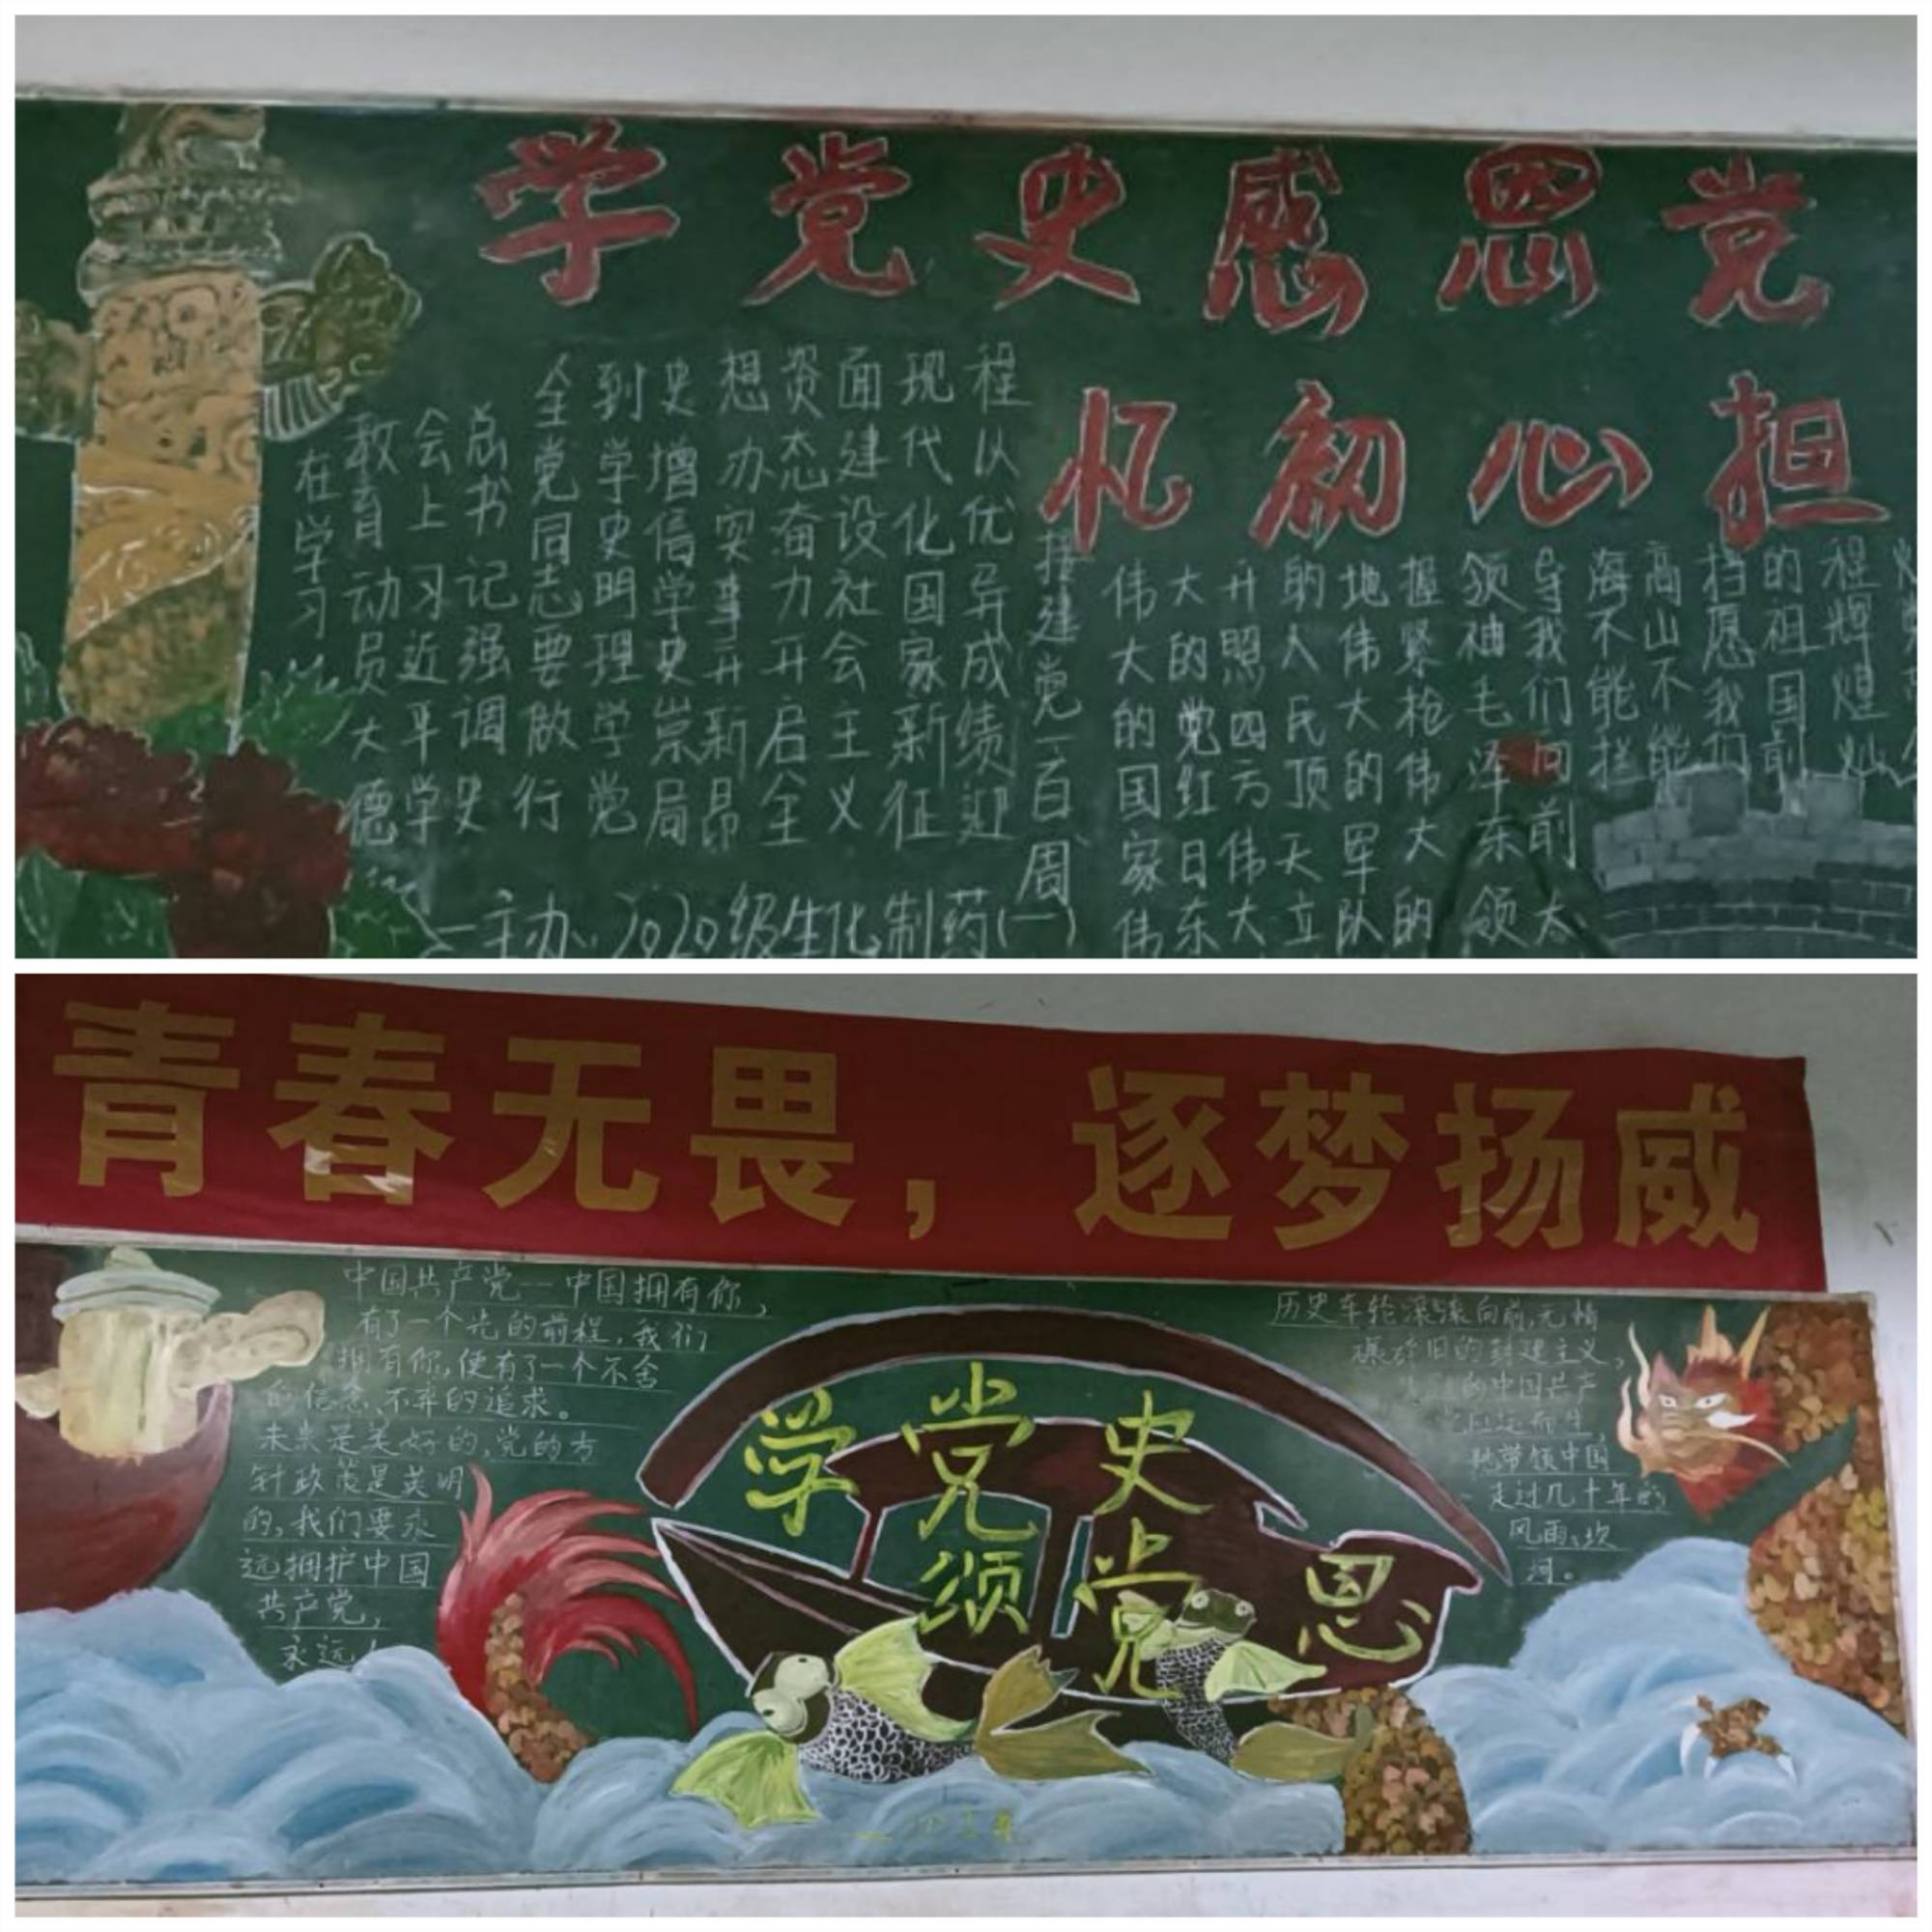 学党史感恩党
忆初心担
在学习
教育动员大德
会上习近平学
总书记强调史
全党同志要做行
到学史明理学党
史增信学史崇局
想办实事开新昂
资态奋力开启全
面建设社会主义
现代化国家新征
程从优异成绩迎
接建党一百周
伟大的国家伟
大的党红日东
升照四方伟大
的人民顶天立
地伟大的军队
握紧枪伟大的
领袖毛泽东领
导我们向前大
海不能拦
高山不能
挡愿我们
的祖国前
程辉煌灿
主办:2020级生化制药(一)
青春无畏，逐梦扬威
中国共产党—中国拥有你，
有了一个光的前程，我们
拥有你，便有了一个不舍
的信念，不弃的追求。
未来是美好的，党的方
针政策是英明
的，我们要永
远拥护中国
共产党，
永远
学党史
颂党恩
历史车轮滚滚向前，无情
碾碎旧的封建主义，
的中国共产
应运而生，
她带领中国
走过几十年的
风雨、坎
坷。